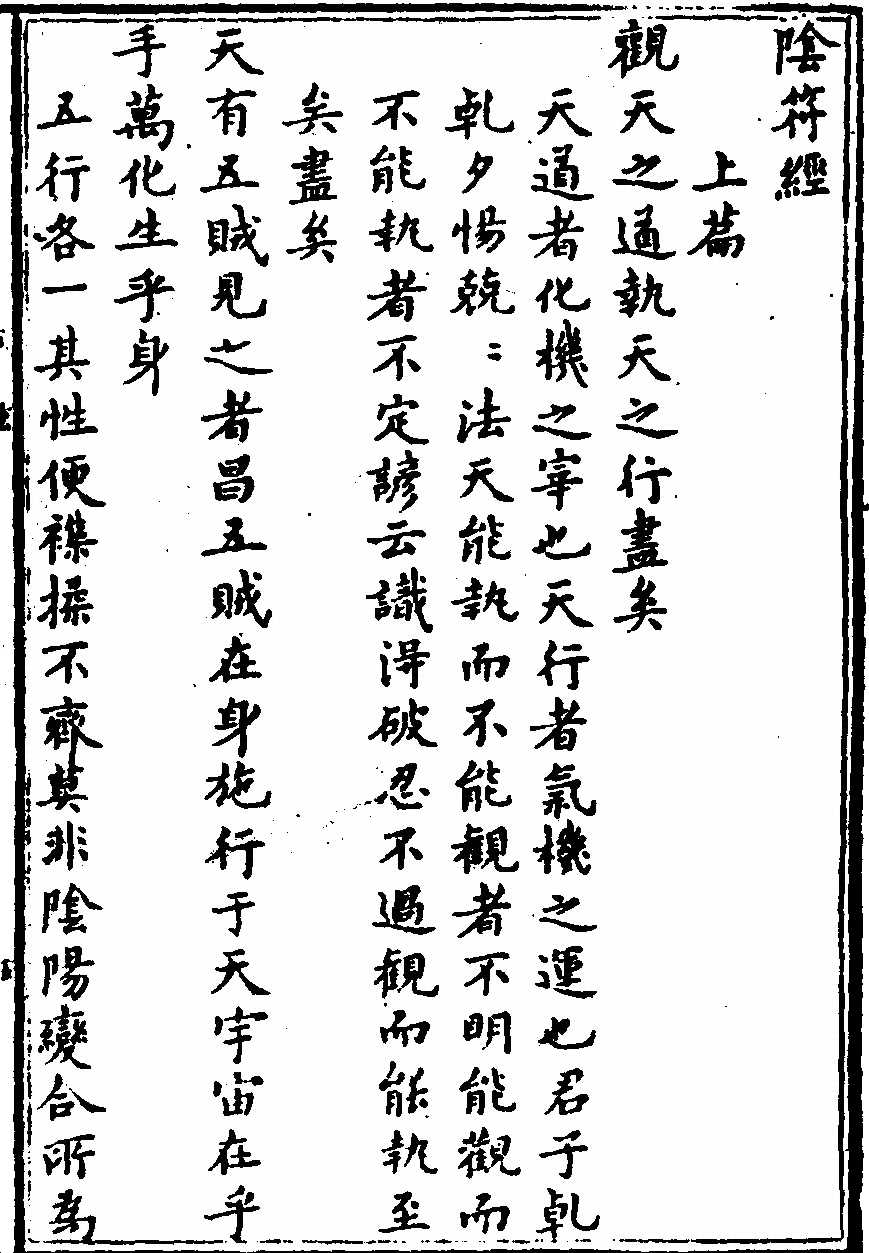 陰符經
上篇
觀天之道執天之行盡矣
天道者化機之宰也天行者氣機之運也君子乹
乹夕惕兢〻法天能執而不能觀者不明能觀而
不能執者不定諺云識淂破忍不過觀而能執至
矣盡矣
天有五賊見之者昌五賊在身施行于天宇宙在乎
手萬化生乎身
五行各一其性便襍揉不齊莫非陰陽變合所為